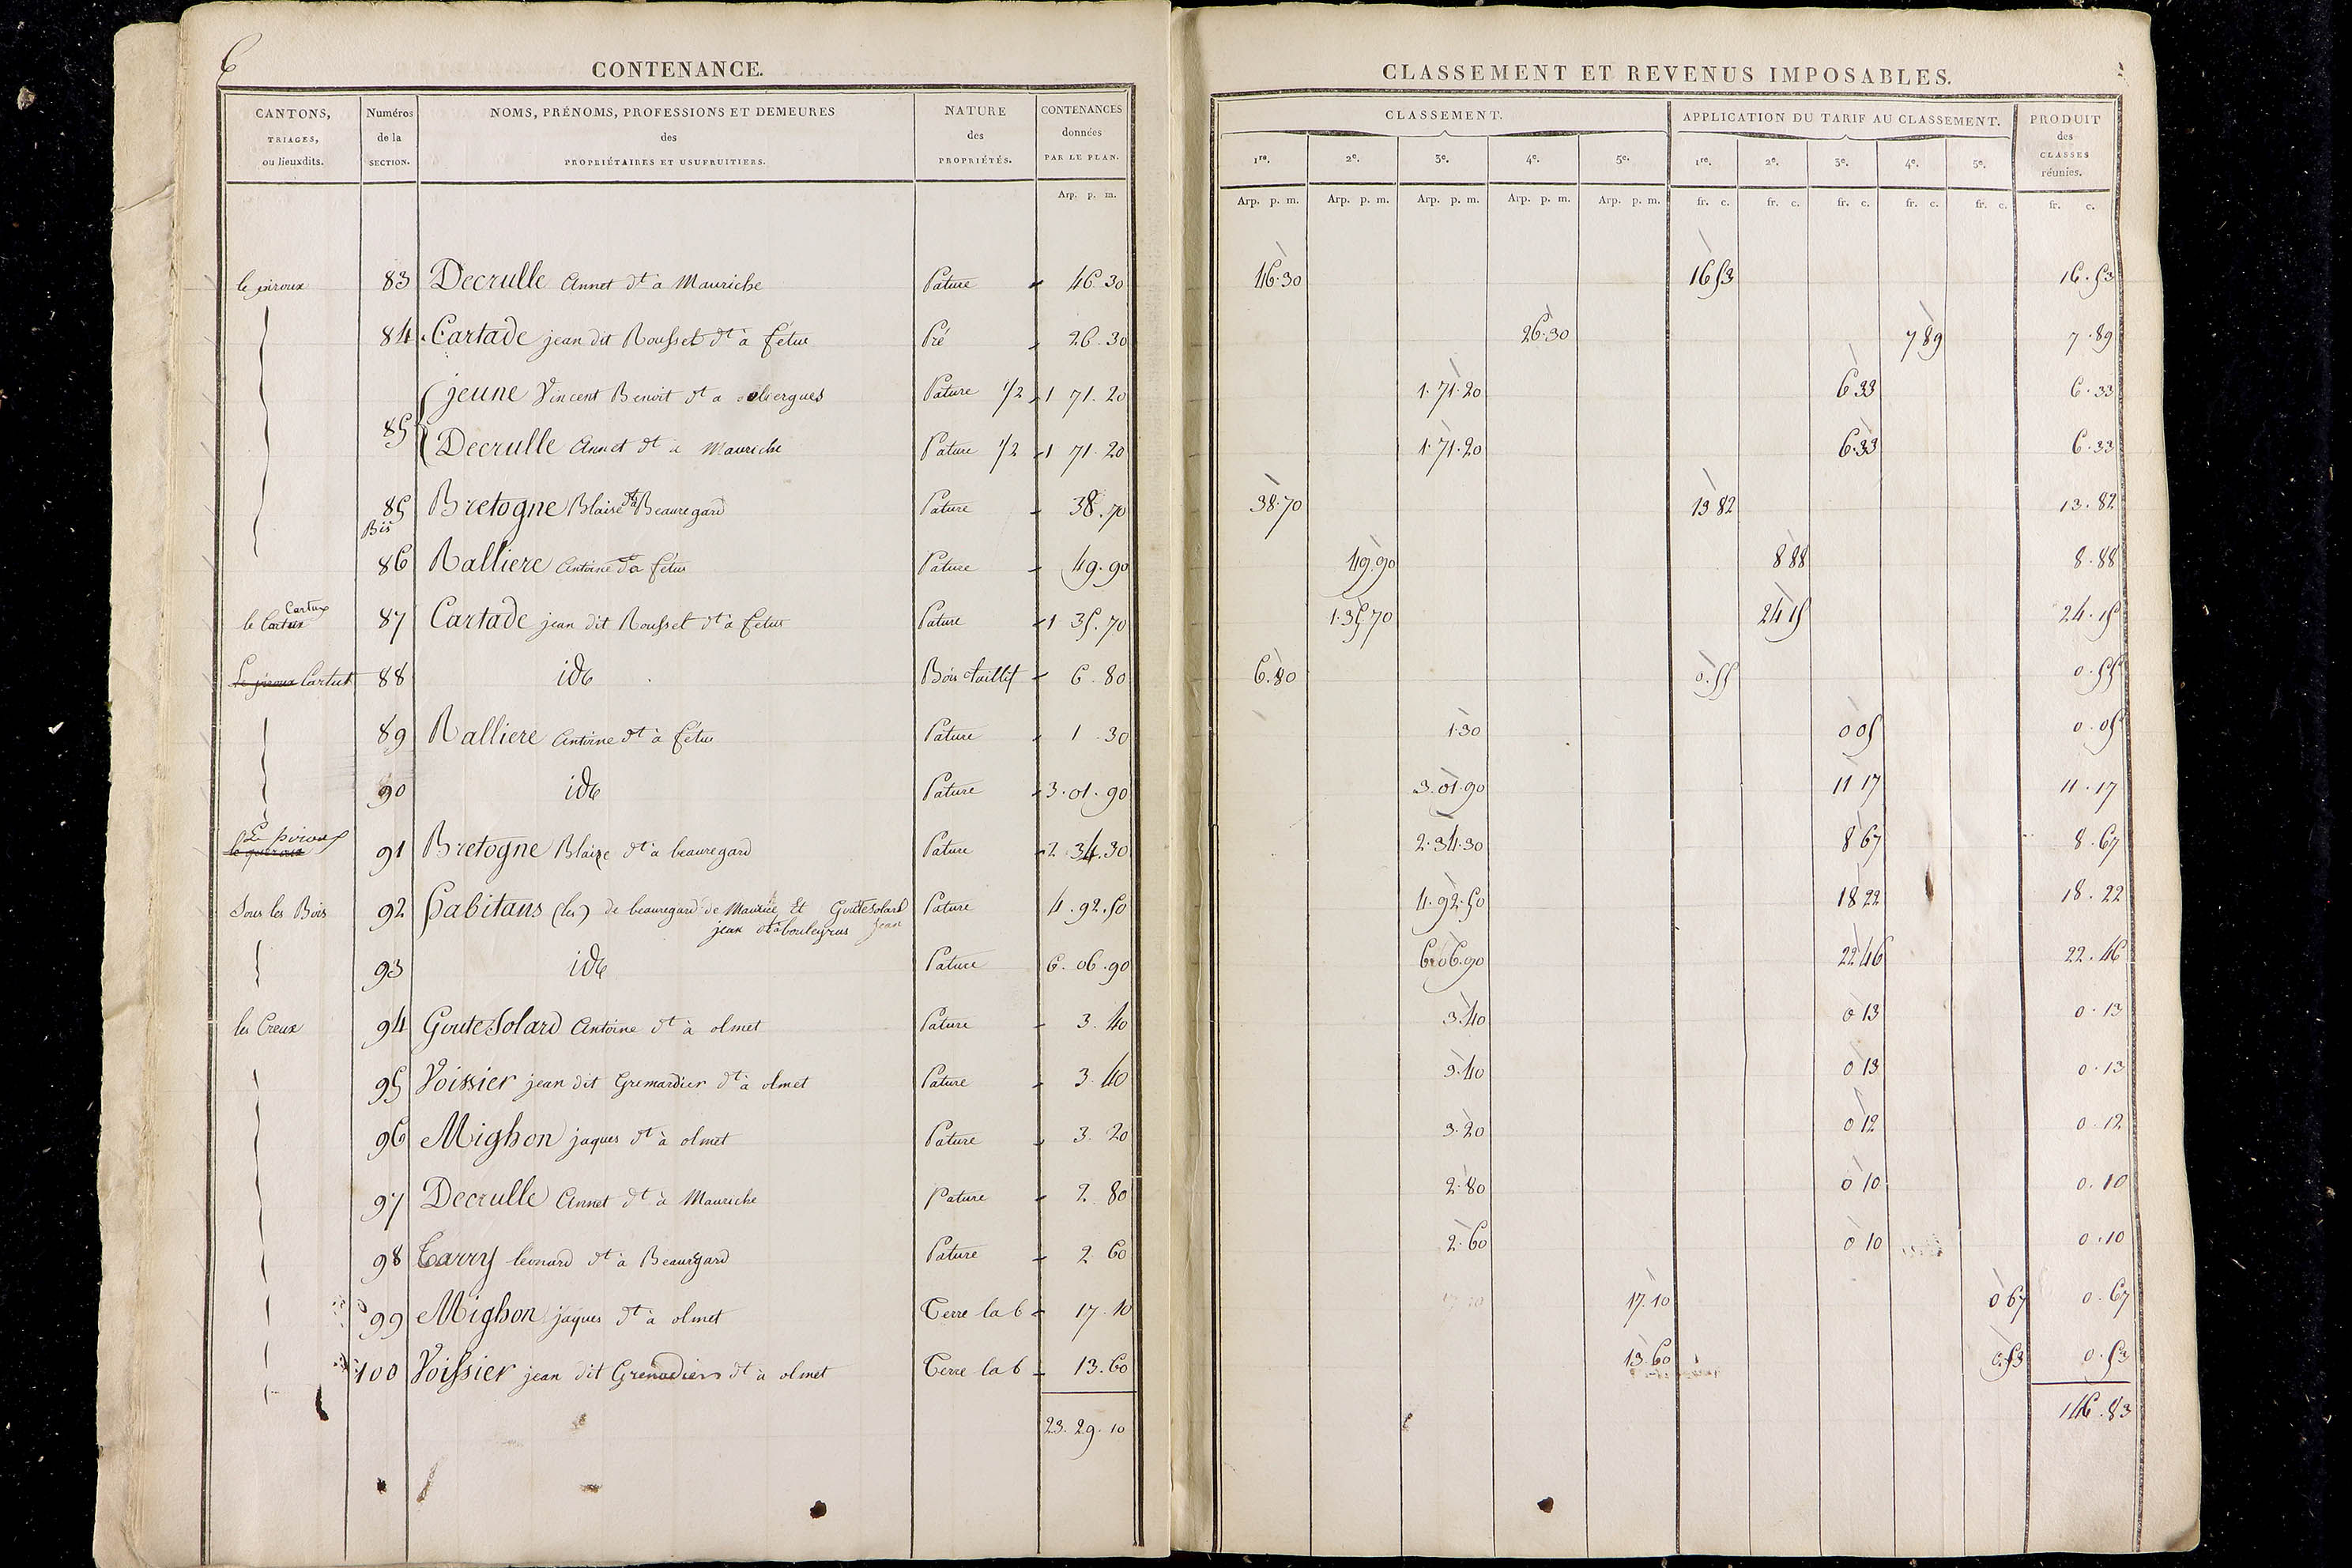 6
CONTENANCE.
CANTONS, TRIAGES, ou lieuxdits. | Numéros de la SECTION. | NOMS, PRÉNOMS, PROFESSIONS ET DEMEURES des PROPRIÉTAIRES ET USUFRUITIERS. | NATURE des PROPRIÉTÉS. | CONTENANCES données PAR LE PLAN.
Arp. p. m.
83 Decrulle Annet dt à Mauriche Pature 46.30
84 Cartade jean dit Rousset dt à fétus Pré 26.30
jeune Vincent Benoit dt a oliergues Pature 1/2 1 71.20
85 Decrulle Annet dt à Mauriche Pature 1/2 1 71.20
85 Bis Bretogne Blaise dt à Beauregard Pature 38.70
86 Ralliere Antoine dt à fétus Pature 49.90
le Cartux Cartux 87 Cartade jean dit Rousset dt à fétus Pature 1 35.70
Cartux 88 ide Bois taillif 6.80
89 Ralliere Antoine dt à fétus Pature 1.30
90 ide Pature 3.01.90
Le piroux 91 Bretogne Blaize dt à beauregard Pature 2.34.30
Sous les Bois 92 habitans (les) de beauregard de Maurice Et GouteSolard Pature 4.92.50
jean dt à jean
93 ide Pature 6.06.90
les Creux 94 GouteSolard Antoine dt à olmet Pature 3.40
95 Voissier jean dit Gremardier dt à olmet Pature 3.40
96 Mighon jaques dt à olmet Pature 3.20
97 Decrulle Annet dt à Mauriche Pature 2.80
98 Tarry leonard dt à Beauregard Pature 2.60
99 Mighon jaques dt à olmet Terre lab 17.10
100 Voissier jean dit Grenadier dt à olmet Terre lab 13.60
23.29.10
CLASSEMENT ET REVENUS IMPOSABLES.
CLASSEMENT. | APPLICATION DU TARIF AU CLASSEMENT. | PRODUIT des CLASSES réunies.
1re. 2e. 3e. 4e. 5e. 1re. 2e. 3e. 4e. 5e.
Arp. p. m. Arp. p. m. Arp. p. m. Arp. p. m. Arp. p. m. fr. c. fr. c. fr. c. fr. c. fr. c. fr. c.
46.30 16 53 16.53
26.30 7 89 7.89
1.71.20 6 33 6.33
1.71.20 6.33 6.33
38.70 13 82 13.82
49.90 8 88 8.88
1.35.70 24 15 24.15
6.80 0.55 0.55
1.30 0 05 0.05
3.01.90 11 17 11.17
2.34.30 8 67 8.67
4.92.50 18 22 18.22
6.06.90 22 46 22.46
3.40 0 13 0.13
3.40 0 13 0.13
3.20 0 12 0.12
2.80 0 10 0.10
2.60 0 10 0.10
17.10 0 67 0.67
13.60 0.53 0.53
146.83